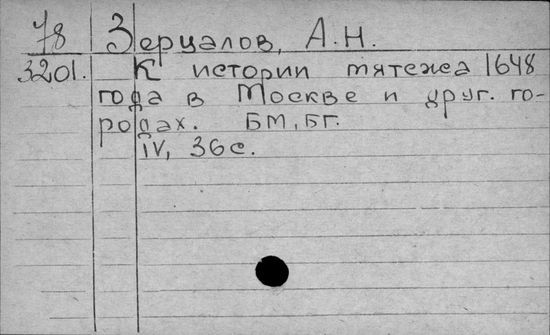 78 Зерцалов, А.Н.
3201. К истории мятежа 1648
года в Москве и друг. го-
родах. БМ, БГ.
IV, 36с.